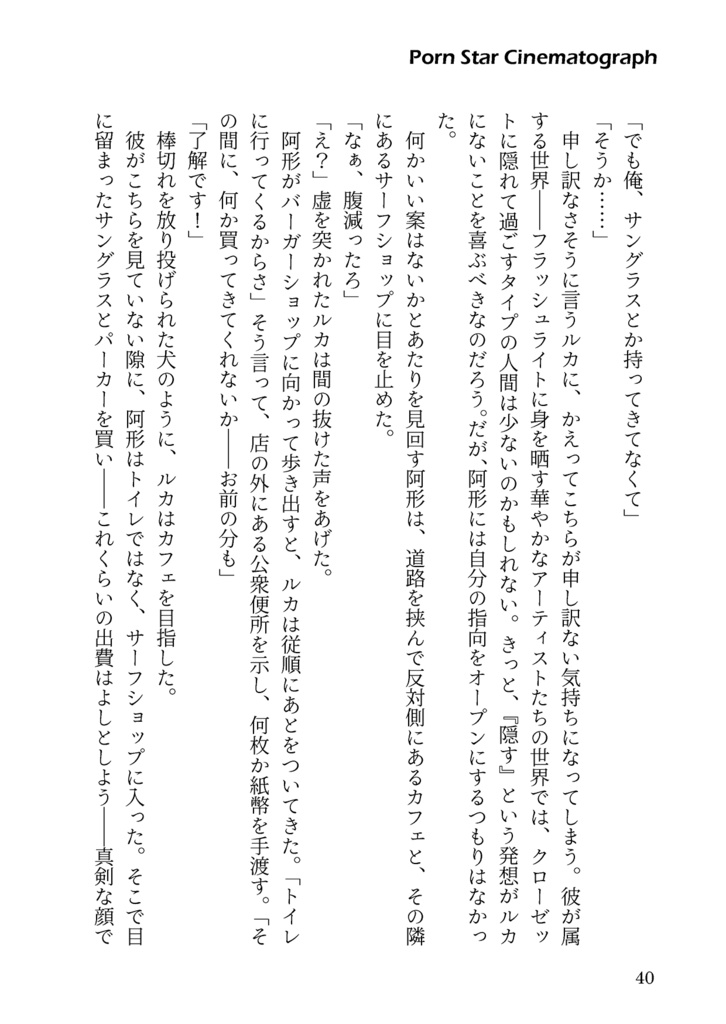 Porn Star Cinematograph
「でも俺、サングラスとか持ってきてなくて」
「そうか……」
　申し訳なさそうに言うルカに、かえってこちらが申し訳ない気持ちになってしまう。彼が属
する世界――フラッシュライトに身を晒す華やかなアーティストたちの世界では、クローゼッ
トに隠れて過ごすタイプの人間は少ないのかもしれない。きっと、『隠す』という発想がルカ
にないことを喜ぶべきなのだろう。だが、阿形には自分の指向をオープンにするつもりはなかっ
た。
　何かいい案はないかとあたりを見回す阿形は、道路を挟んで反対側にあるカフェと、その隣
にあるサーフショップに目を止めた。
「なぁ、腹減ったろ」
「え？」虚を突かれたルカは間の抜けた声をあげた。
　阿形がバーガーショップに向かって歩き出すと、ルカは従順にあとをついてきた。「トイレ
に行ってくるからさ」そう言って、店の外にある公衆便所を示し、何枚か紙幣を手渡す。「そ
の間に、何か買ってきてくれないか――お前の分も」
「了解です！」
　棒切れを放り投げられた犬のように、ルカはカフェを目指した。
　彼がこちらを見ていない隙に、阿形はトイレではなく、サーフショップに入った。そこで目
に留まったサングラスとパーカーを買い――これくらいの出費はよしとしよう――真剣な顔で
40